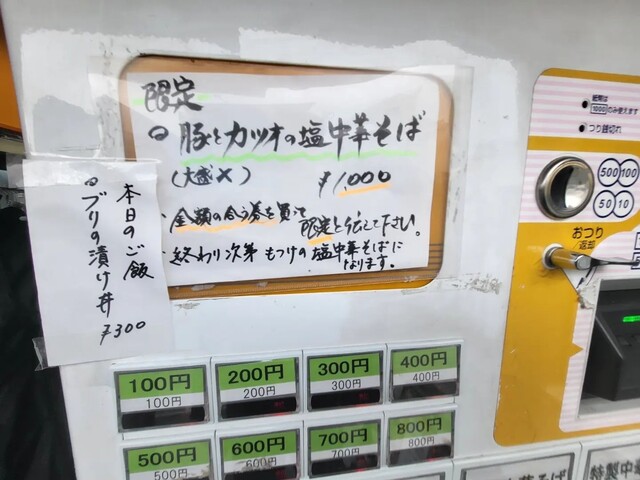 限定
豚とカツオの塩中華そば
(大盛×) ¥1,000
金額の合う券を買って
限定と伝えて下さい。
終わり次第 もつけの塩中華そばに
なります。
本日のご飯
ブリの漬け丼
¥300
紙幣は
1000のみ使えます
つり銭切れ
500 100
50 10
おつり
返却
100円
100円
200円
200円
300円
300円
400円
400円
500円
500円
600円
600円
700円
700円
800円
800円
華そば
特製中華